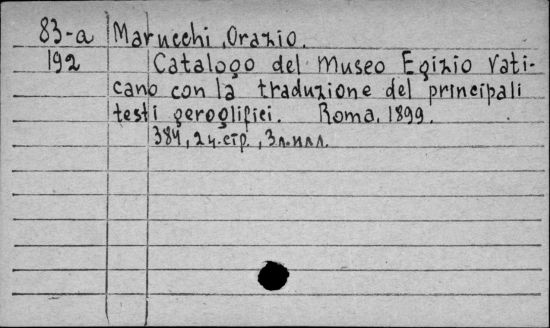 83-a Marucchi, Orazio.
192 Catalogo del Museo Egizio Vati-
cano con la traduzione del principali
testi geroglifici. Roma, 1899.
384, 2 н. стр., 3 л. илл.